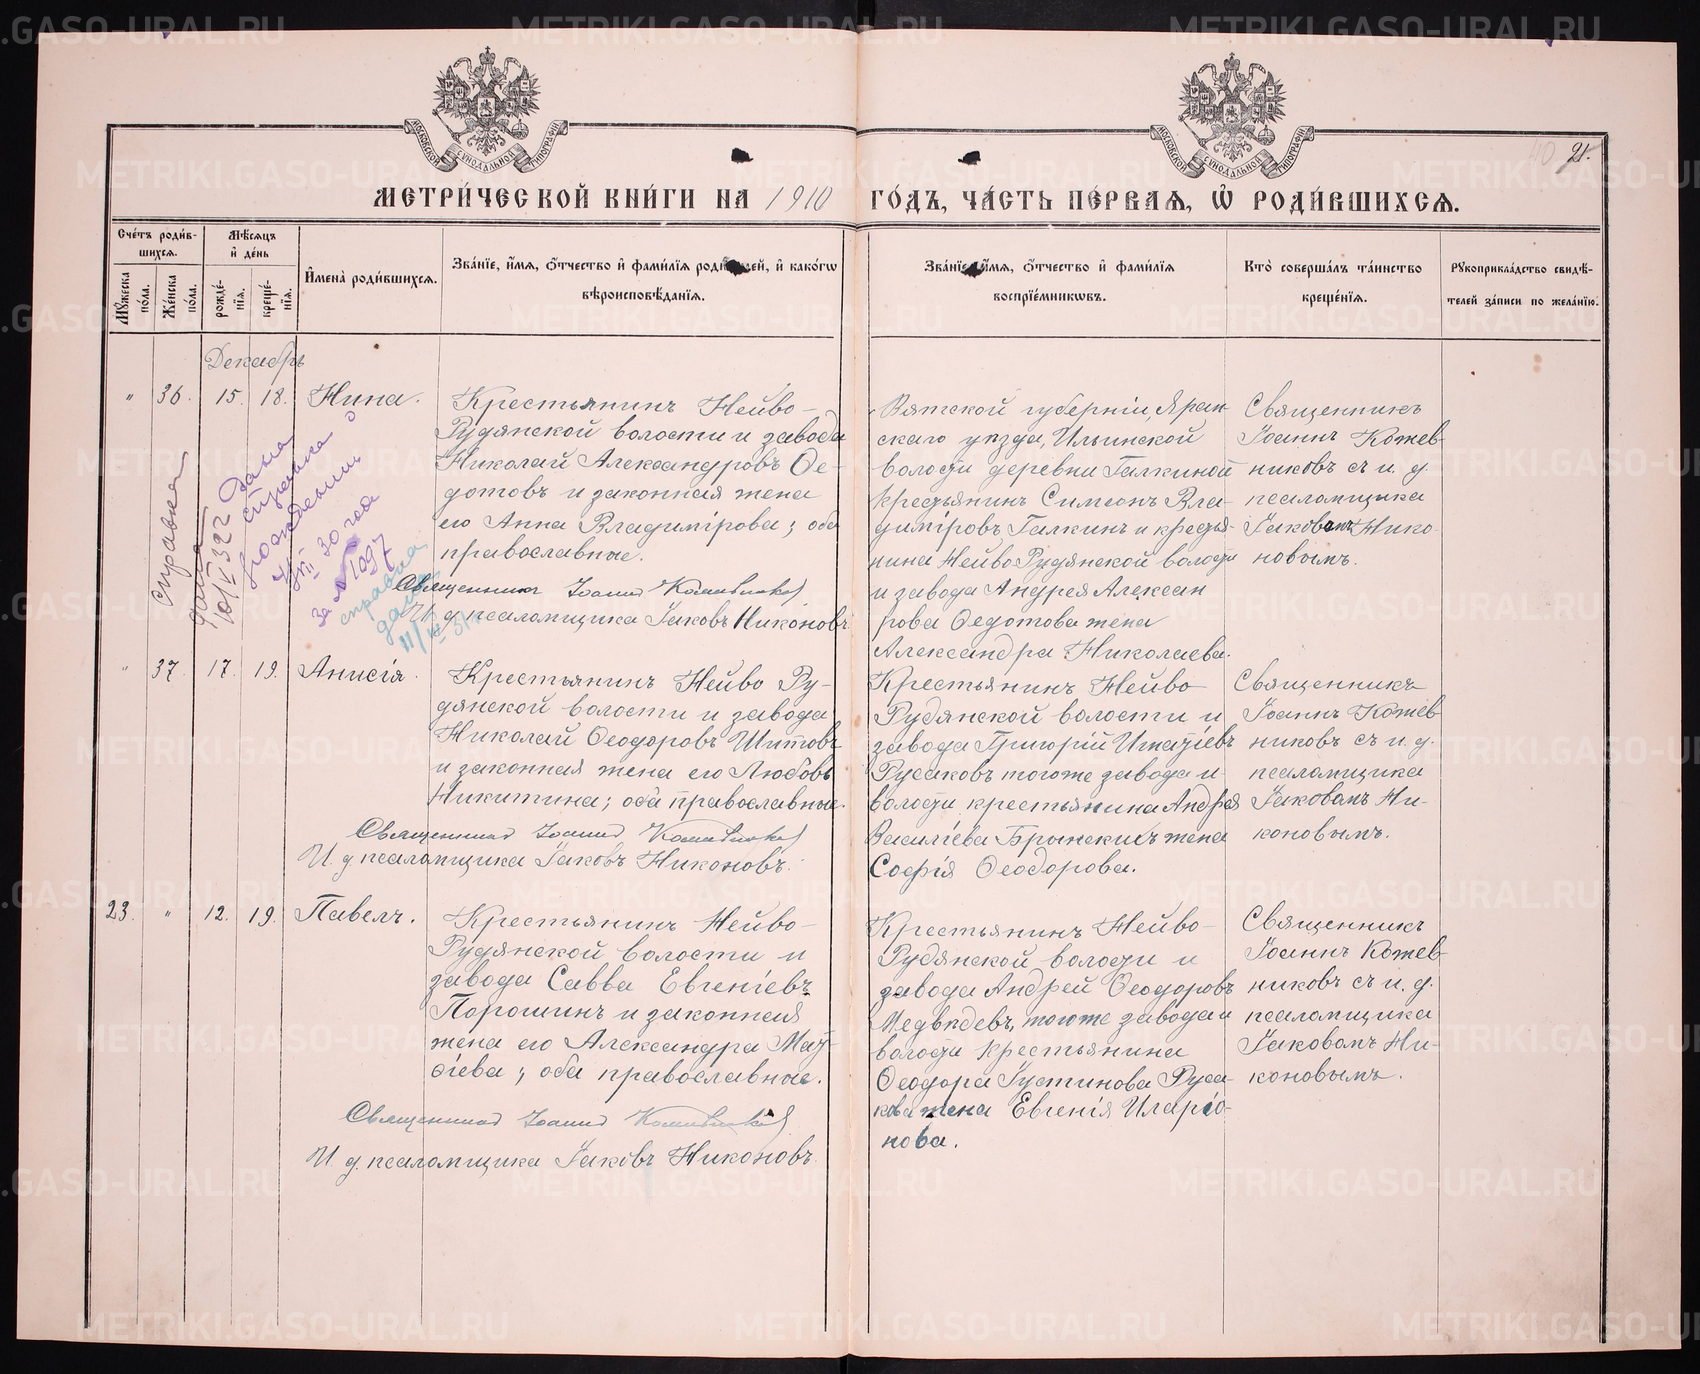 МЕТРИ́ЧЕСКОЙ КНИ́ГИ НА 1910 ГО́ДЪ, ЧА́СТЬ ПЕ́РВАЯ, Ѽ РОДИ́ВШИХСЯ.
21.
МОСКОВСКОЙ СѴНОДАЛЬНОЙ ТИПОГРАФІИ
МОСКОВСКОЙ СѴНОДАЛЬНОЙ ТИПОГРАФІИ
Сче́тъ роди́в-
шихся.
Мꙋ́жеска по́ла.
Же́нска по́ла.
Мѣ́сяцъ
и҆ де́нь
рожде́-
нїя.
креще́-
нїя.
И҆мена̀ роди́вшихся.
Зва́нїе, и҆́мя, ѻ҆́тчество и҆ фами́лїя роди́телей, и҆ како́гѡ
вѣроисповѣ́данїя.
Зва́нїе, и҆́мя, ѻ҆́тчество и҆ фами́лїя
воспрїе́мникѡвъ.
Кто̀ соверша́лъ та́инство
креще́нїя.
Рꙋкоприкла́дство свидѣ́-
телей за́писи по жела́нїю.
Декабрь
" 36. 15. 18. Нина.
Крестьянинъ Нейво-
Рудянской волости и завода
Николай Александровъ Ѳе-
дотовъ и законная жена
его Анна Владимірова; оба
православные.
Священникъ Іоаннъ Кожевниковъ
И. д. псаломщика Іаковъ Никоновъ.
Вятской губерніи, Яран-
скаго уѣзда, Ильинской
волости деревни Галкиной
крестьянинъ Симеонъ Вла-
диміровъ Галкинъ и крестья-
нина Нейво Рудянской волости
и завода Андрея Алексан
рова Ѳедотова жена
Александра Николаева.
Священникъ
Іоаннъ Кожев-
никовъ съ и. д.
псаломщика
Іаковомъ Нико-
новымъ.
Справка
дана
10/V 32 г
Дана
справка о
рождении
30 года
за № 1097
справка
дана
" 37. 17. 19. Анисія.
Крестьянинъ Нейво Ру-
дянской волости и завода
Николай Ѳеодоровъ Шитовъ
и законная жена его Любовь
Никитина; оба православные.
Священникъ Іоаннъ Кожевниковъ
И. д. псаломщика Іаковъ Никоновъ.
Крестьянинъ Нейво
Рудянской волости и
завода Григорій Игнатіевъ
Русаковъ тогоже завода и
волости крестьянина Андрея
Василіева Брынскихъ жена
Софія Ѳеодорова.
Священникъ
Іоаннъ Кожев
никовъ съ и. д.
псаломщика
Іаковомъ Ни-
коновымъ.
23. " 12. 19. Павелъ.
Крестьянинъ Нейво-
Рудянской волости и
завода Савва Евгеніевъ
Порошинъ и законная
жена его Александра Мат-
ѳіева; оба православные.
Священникъ Іоаннъ Кожевниковъ
И. д. псаломщика Іаковъ Никоновъ.
Крестьянинъ Нейво-
Рудянской волости и
завода Андрей Ѳеодоровъ
Медвѣдевъ, тогоже завода и
волости крестьянина
Ѳеодора Іустинова Руса-
кова жена Евгенія Иларіо-
нова.
Священникъ
Іоаннъ Кожев-
никовъ съ и. д.
псаломщика
Іаковомъ Ни-
коновымъ.
METRIKI.GASO-URAL.RU